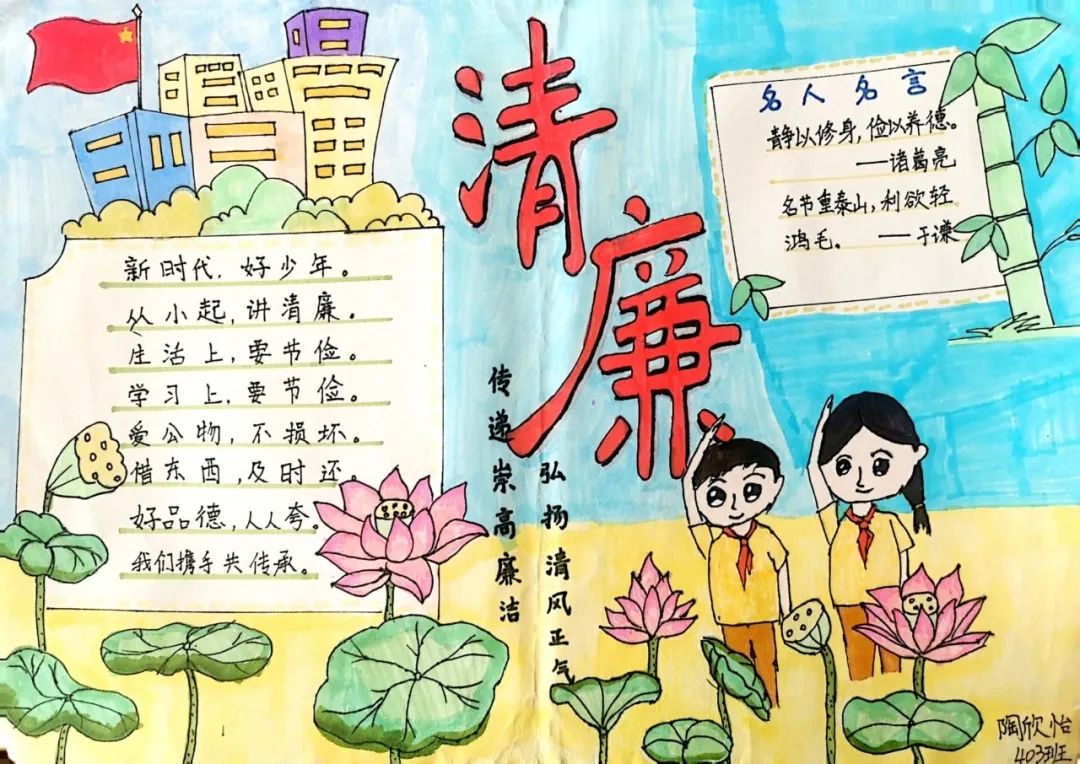 清廉
新时代，好少年。
从小起，讲清廉。
生活上，要节俭。
学习上，要节俭。
爱公物，不损坏。
借东西，及时还。
好品德，人人夸。
我们携手共传承。
传递崇高廉洁
弘扬清风正气
名人名言
静以修身，俭以养德。
——诸葛亮
名节重泰山，利欲轻
鸿毛。——于谦
陶欣怡
403班